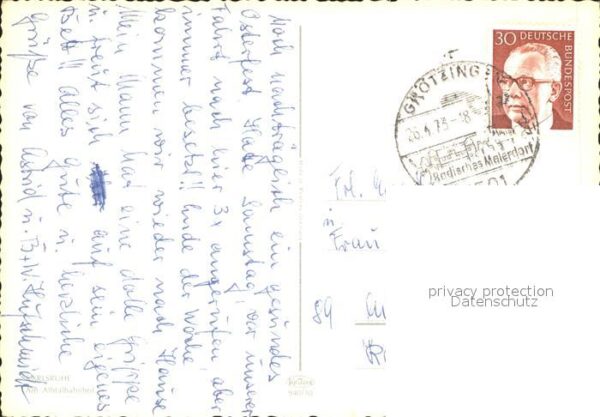 Noch nachträglich ein gesundes
Osterfest. Hatte Samstag, vor unserer
Fahrt nach hier 3x angerufen aber
immer besetzt!! Ende der Woche
kommen wir wieder nach Hause
Mein Mann hat eine dolle Grippe
u. freut sich auf sein eigenes
Bett!! Alles Gute u. herzliche
Grüße von Astrid u.
KARLSRUHE
Albtalbahnhof
30 DEUTSCHE
BUNDESPOST
GRÖTZINGEN
26.4.73-18
Badisches Malerdorf
u
Frau
89
privacy protection
Datenschutz